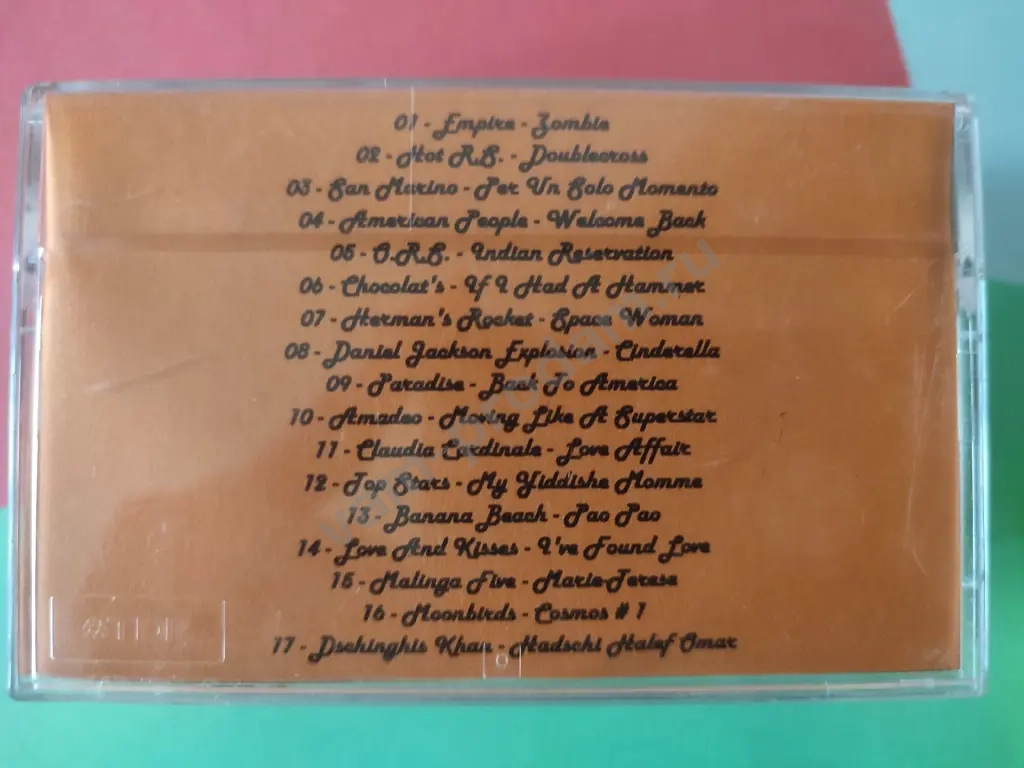 01 - Empire - Zombie
02 - Hot R.S. - Doublecross
03 - San Marino - Per Un Solo Momento
04 - American People - Welcome Back
05 - O.R.S. - Indian Reservation
06 - Chocolat's - If I Had A Hammer
07 - Herman's Rocket - Space Woman
08 - Daniel Jackson Explosion - Cinderella
09 - Paradise - Back To America
10 - Amadeo - Moving Like A Superstar
11 - Claudia Cardinale - Love Affair
12 - Top Stars - My Yiddishe Momme
13 - Banana Beach - Pao Pao
14 - Love And Kisses - I've Found Love
15 - Malinga Five - Marie-Terese
16 - Moonbirds - Cosmos # 1
17 - Dschinghis Khan - Hadschi Halef Omar